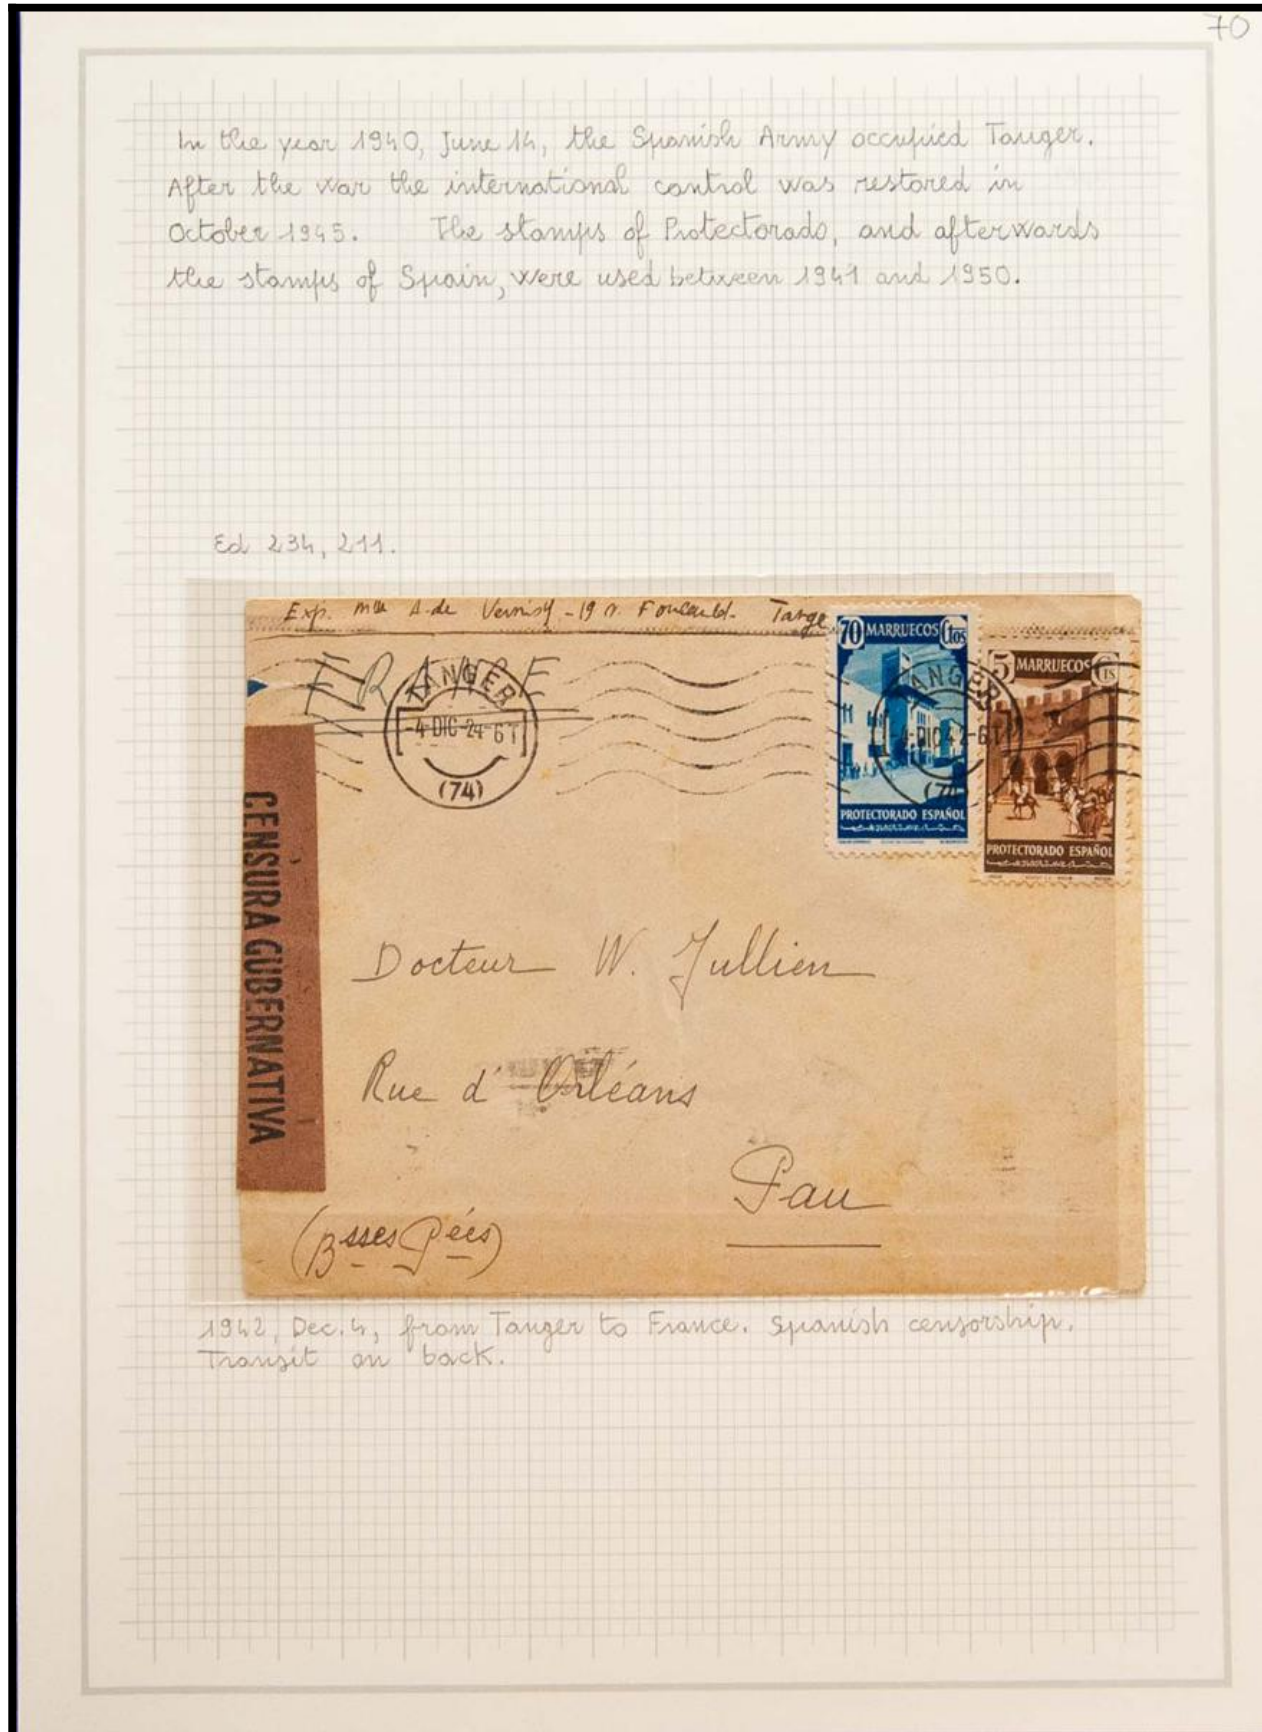 70
In the year 1940, June 14, the Spanish Army occupied Tanger.
After the war the international control was restored in
October 1945. The stamps of Protectorado, and afterwards
the stamps of Spain, were used between 1941 and 1950.
Ed 234, 211.
Exp. Mlle A. de - 19 r. Foucauld. Tange
70 MARRUECOS Ctos
5 MARRUECOS Cts
FRANCE
TANGER
4-DIC-24-6T
(74)
TANGER
4-DIC42-6T
(74
PROTECTORADO ESPAÑOL
PROTECTORADO ESPAÑOL
CENSURA GUBERNATIVA
Docteur W. Jullien
Rue d'Orléans
Pau
(Bsses Pées)
1942, Dec. 4, from Tanger to France. Spanish censorship.
Transit on back.